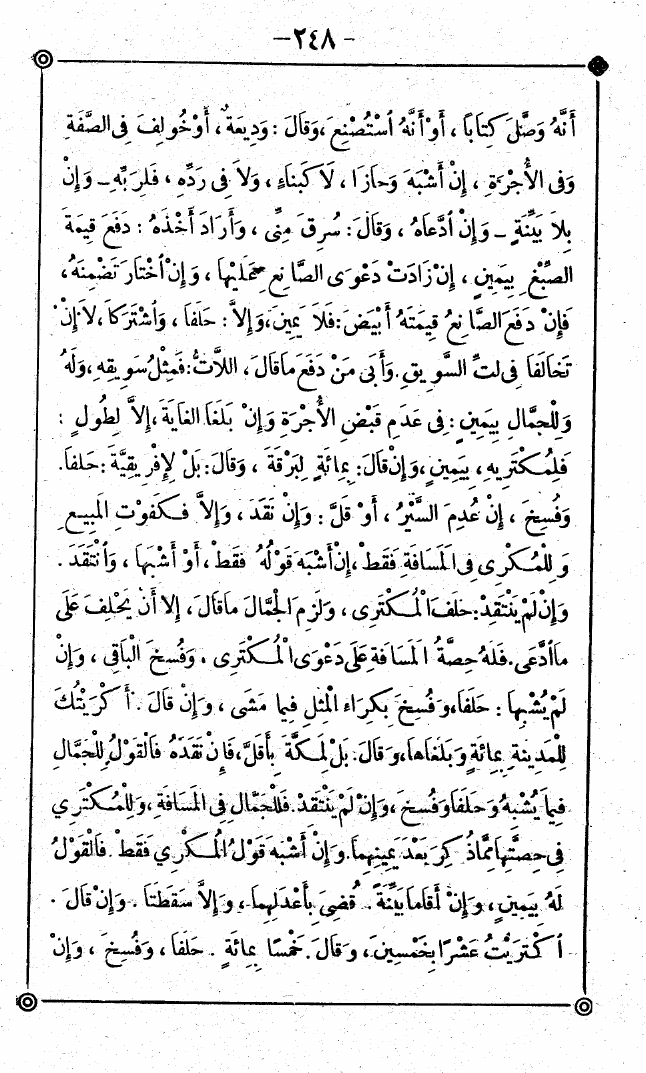 -٢٤٨-
أَنَّهُ وَصَّلَ كِتَابًا ، أَوْ أَنَّهُ اُسْتُصْنِعَ ، وَقَالَ : وَدِيعَةٌ ، أَوْ خُولِفَ فِى الصِّفَةِ
وَفِى الأُجْرَةِ ، إِنْ أَشْبَهَ وَحَازَا ، لَا كَبِنَاءٍ ، وَلَا فِى رَدِّهِ ، فَلِرَبِّهِ - وَإِنْ
بِلاَ بَيِّنَةٍ - وَإِنْ اُدَّعَاهُ ، وَقَالَ : سُرِقَ مِنِّى ، وَأَرَادَ أَخْذَهُ : دَفَعَ قِيمَةَ
الصِّبْغِ بِيَمِينٍ ، إِنْ زَادَتْ دَعْوَى الصَّانِعِ عَلَيْهَا ، وَإِنْ اُخْتَارَ تَضْمِنَهُ ،
فَإِنْ دَفَعَ الصَّانِعُ قِيمَتَهُ أَبْيَضَ : فَلاَ يَمِينَ ، وَإِلاَّ : حَلَفَا ، وَاُشْتَرَكَا ، لاَ إِنْ
تَخَالَفَا فِى لَتِّ السَّوِيقِ . وَأَبَى مَنْ دَفَعَ مَا قَالَ ، اللاَّتُّ : فَمِثْلُ سَوِيقِهِ ، وَلَهُ
وَلِلْجَمَّالِ بِيَمِينٍ : فِى عَدَمِ قَبْضِ الأُجْرَةِ وَإِنْ بَلَغَا الغَايَةَ ، إِلاَّ لِطُولٍ :
فَلِمُكْتَرِيهِ ، بِيَمِينٍ ، وَإِنْ قَالَ : بِمِائَةٍ لِبَرْقَةَ ، وَقَالَ : بَلْ لإِفْرِيقِيَّةَ : حَلَفَا.
وَفُسِخَ ، إِنْ عُدِمَ السَّيْرُ ، أَوْ قَلَّ : وَإِنْ نَقَدَ ، وَإِلاَّ فَكَفَوْتِ المَبِيعِ
وَلِلْمُكْرِى فِى المَسَافَةِ فَقَطْ ، إِنْ أَشْبَهَ قَوْلُهُ فَقَطْ ، أَوْ أَشْبَهَا ، وَاُنْتَقَدَ .
وَإِنْ لَمْ يَنْتَقِدْ : حَلَفَ الْمُكْتَرِى ، وَلَزِمَ الجَمَّالَ مَا قَالَ ، إِلاَّ أَنْ يَحْلِفَ عَلَى
مَا اُدَّعَى . فَلَهُ حِصَّةُ المَسَافَةِ عَلَى دَعْوَى الْمُكْتَرِى . وَفُسِخَ البَاقِى ، وَإِنْ
لَمْ يُشْبِهَا : حَلَفَا ، وَفُسِخَ بِكِرَاءِ الْمِثْلِ فِيمَا مَشَى ، وَإِنْ قَالَ . أَكْرَيْتُكَ
لِلْمَدِينَةِ بِمِائَةٍ وَبَلَغَاهَا ، وَقَالَ : بَلْ لِمَكَّةَ بِأَقَلَّ ، فَإِنْ نَقَدَهُ فَالْقَوْلُ لِلْجَمَّالِ
فِيمَا يُشْبِهُ وَحَلَفَا وَفُسِخَ ، وَإِنْ لَمْ يَنْتَقِدْ . فَلِلْجَمَّالِ فِى المَسَافَةِ ، وَلِلْمُكْتَرِي
فِى حِصَّتِهَا مِمَّا ذُكِرَ بَعْدَ يَمِينِهِمَا . وَإِنْ أَشْبَهَ قَوْلُ الْمُكْرِي فَقَطْ . فَالْقَوْلُ
لَهُ بِيَمِينٍ ، وَإِنْ أَقَامَا بَيِّنَةً . قُضِىَ بِأَعْدَلِهِمَا ، وَإِلاَّ سَقَطَتَا . وَإِنْ قَالَ .
اُكْتَرَيْتُ عَشْرًا بِخَمْسِينَ ، وَقَالَ . خَمْسًا بِمِائَةٍ . حَلَفَا ، وَفُسِخَ ، وَإِنْ